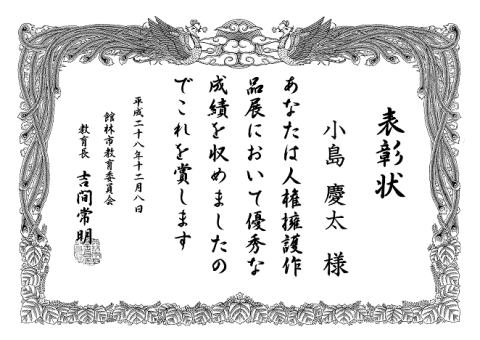 表彰状
小島 慶太 様
あなたは人権擁護作
品展において優秀な
成績を収めましたの
でこれを賞します
平成二十八年十二月八日
館林市教育委員会
教育長 吉間常明